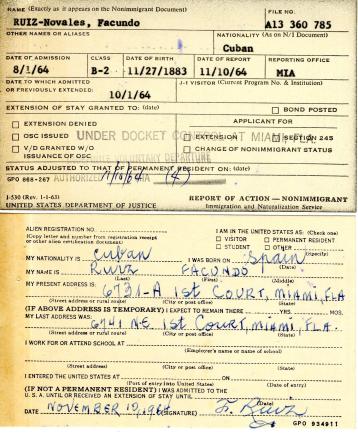 NAME (Exactly as it appears on the Nonimmigrant Document)
FILE NO.
RUIZ-Novales, Facundo
A13 360 785
OTHER NAMES OR ALIASES
NATIONALITY (As on N/I Document)
Cuban
DATE OF ADMISSION
CLASS
DATE OF BIRTH
DATE OF REPORT
REPORTING OFFICE
8/1/64
B-2
11/27/1883
11/10/64
MIA
DATE TO WHICH ADMITTED
or PREVIOUSLY EXTENDED:
10/1/64
J-1 VISITOR (Current Program No. & Institution)
EXTENSION OF STAY GRANTED TO: (date)
BOND POSTED
EXTENSION DENIED
APPLICANT FOR
OSC ISSUED
UNDER DOCKET MIAMI, FLA
EXTENSION
SECTION 245
V/D GRANTED W/O
ISSUANCE OF OSC
VOLUNTARY DEPARTURE
CHANGE OF NONIMMIGRANT STATUS
STATUS ADJUSTED TO PERMANENT RESIDENT ON: (date)
GPO 868-267
AUTHORIZED
I-530 (Rev. 1-1-63)
UNITED STATES DEPARTMENT OF JUSTICE
REPORT OF ACTION — NONIMMIGRANT
Immigration and Naturalization Service
ALIEN REGISTRATION NO.
(Copy letter and number from registration receipt
or other alien certification document)
I AM IN THE UNITED STATES AS: (Check one)
VISITOR
PERMANENT RESIDENT
STUDENT
OTHER
(Specify)
MY NATIONALITY IS Cuban I WAS BORN ON Spain
(Date)
MY NAME IS Ruiz FACUNDO
(Last)
(First)
(Middle)
MY PRESENT ADDRESS IS:
6731-A 1st COURT, MIAMI, FLA
(Street address or rural route)
(City or post office)
(State)
(IF ABOVE ADDRESS IS TEMPORARY) I EXPECT TO REMAIN THERE YRS. MOS.
MY LAST ADDRESS WAS:
6741 NE 1st Court, MIAMI, FLA.
(Street address or rural route)
(City or post office)
(State)
I WORK FOR OR ATTEND SCHOOL AT
(Employer's name or name of school)
(Street address)
(City or post office)
(State)
I ENTERED THE UNITED STATES AT ON
(Port of entry into United States)
(Date of entry)
(IF NOT A PERMANENT RESIDENT) I WAS ADMITTED TO THE
U.S.A. UNTIL OR RECEIVED AN EXTENSION OF STAY UNTIL
(Date)
DATE NOVEMBER 19, 1964 (SIGNATURE) F. Ruiz
GPO 934911